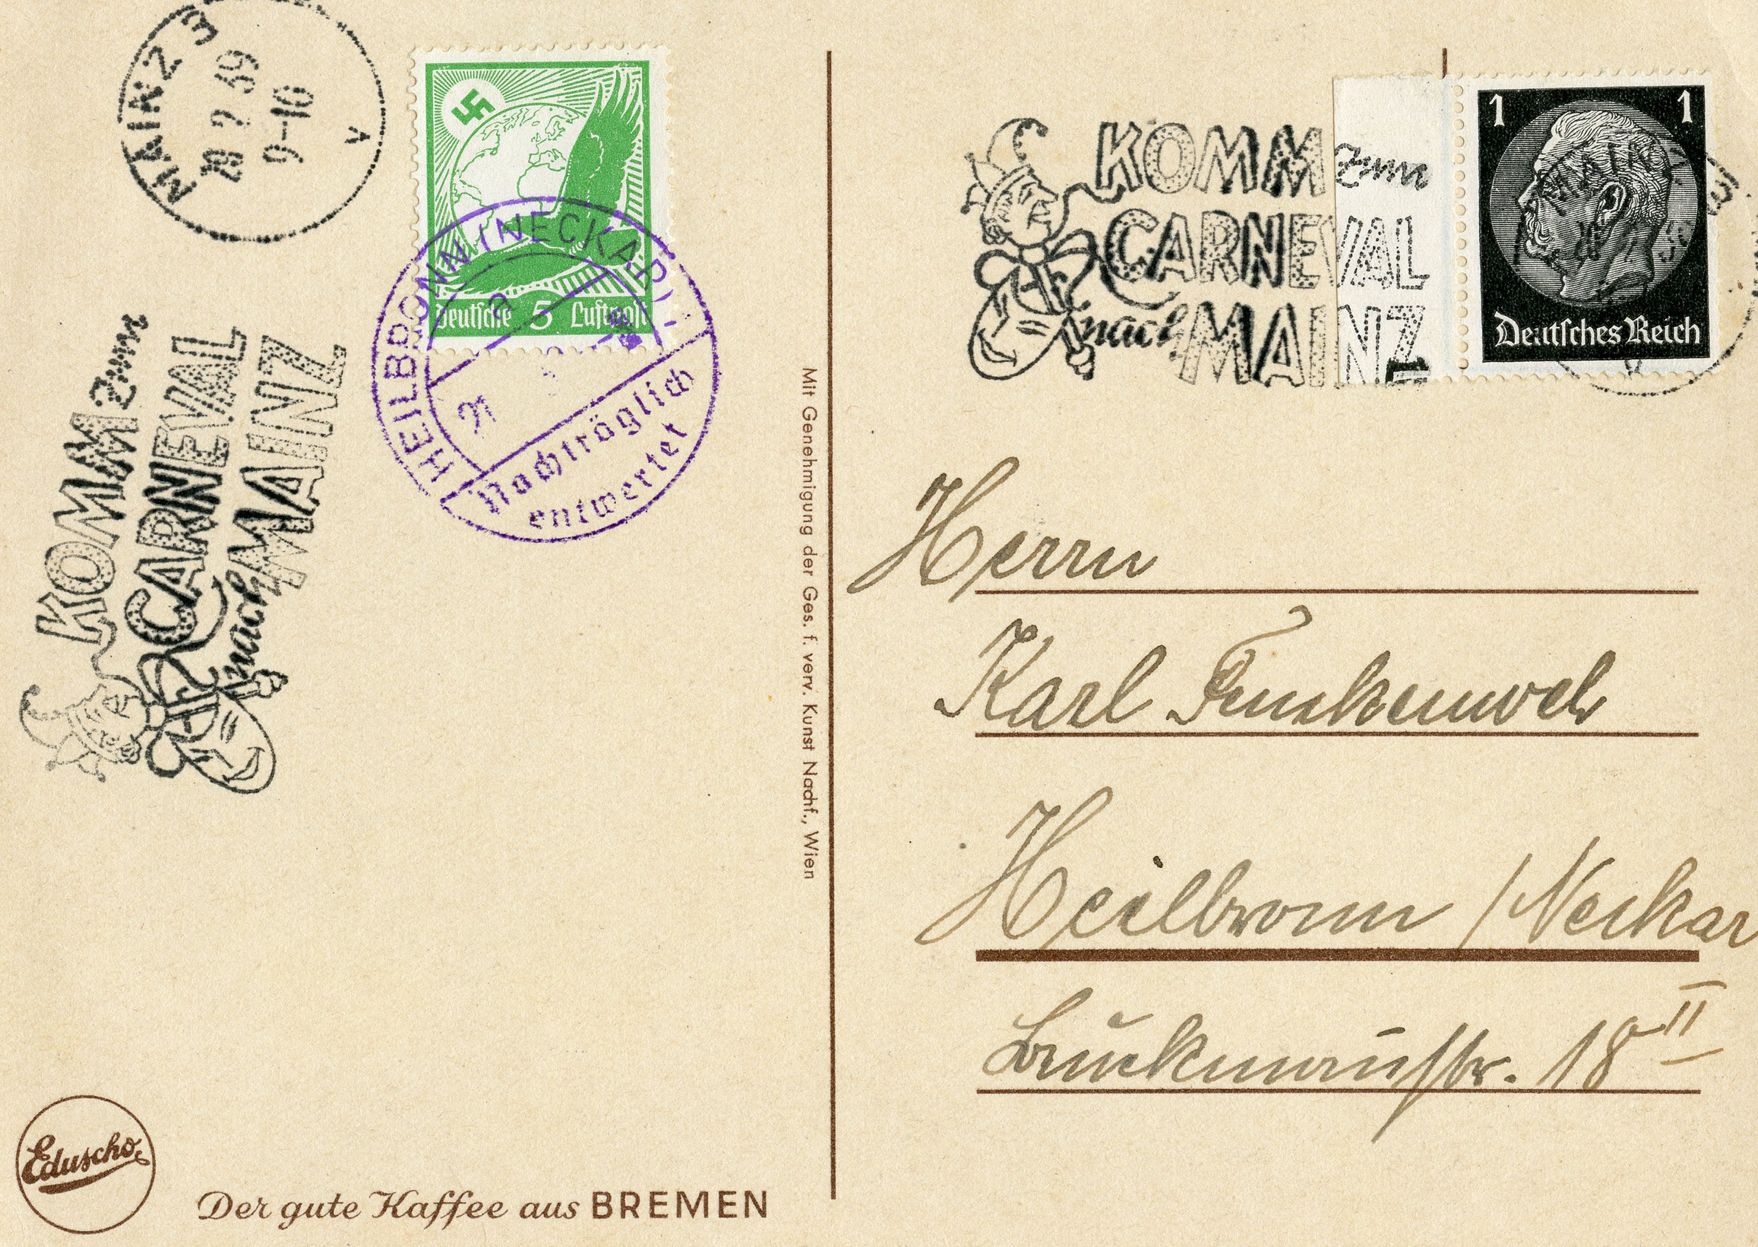 MAINZ 3
18 2 39
9-10
v
Deutsche 5 Luftpost
HEILBRONN (NECKAR)
a
Nachträglich
entwertet
KOMM zum
CARNEVAL
nach MAINZ
KOMM zum
CARNEVAL
nach MAINZ
1 1
Deutsches Reich
MAINZ 3
Mit Genehmigung der Ges. f. verv. Kunst Nachf., Wien
Herrn
Karl
Heilbronn / Neckar
Bruckmannstr. 18 II
Eduscho
Der gute Kaffee aus BREMEN